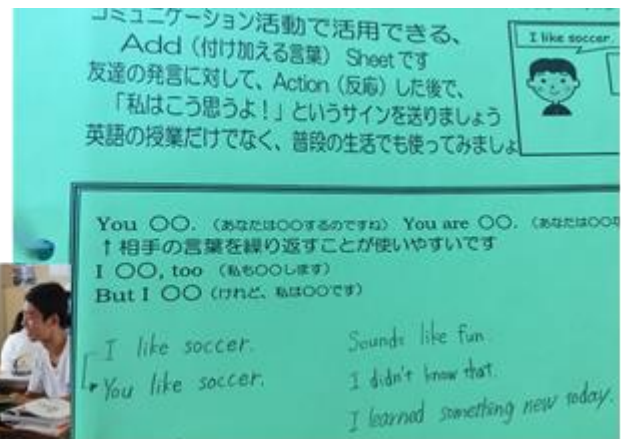 コミュニケーション活動で活用できる、
Add（付け加える言葉） Sheetです
友達の発言に対して、Action（反応）した後で、
「私はこう思うよ！」というサインを送りましょう
英語の授業だけでなく、普段の生活でも使ってみましょ
I like soccer.
You 〇〇. （あなたは〇〇するのですね） You are 〇〇. （あなたは〇〇な
↑相手の言葉を繰り返すことが使いやすいです
I 〇〇, too （私も〇〇します）
But I 〇〇 （けれど、私は〇〇です）
I like soccer.
You like soccer.
Sounds like fun.
I didn't know that.
I learned something new today.